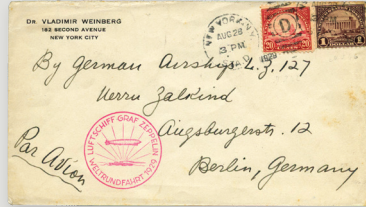 DR. VLADIMIR WEINBERG
182 SECOND AVENUE
NEW YORK CITY
NEW YORK, N.Y.
AUG 28
3 PM
1929
STA. D
D
20
20
1
By German Airship L.Z. 127
Herrn Zalkind
Augsburgerstr. 12
Berlin, Germany
Par Avion
LUFTSCHIFF GRAF ZEPPELIN
WELTRUNDFAHRT 1929